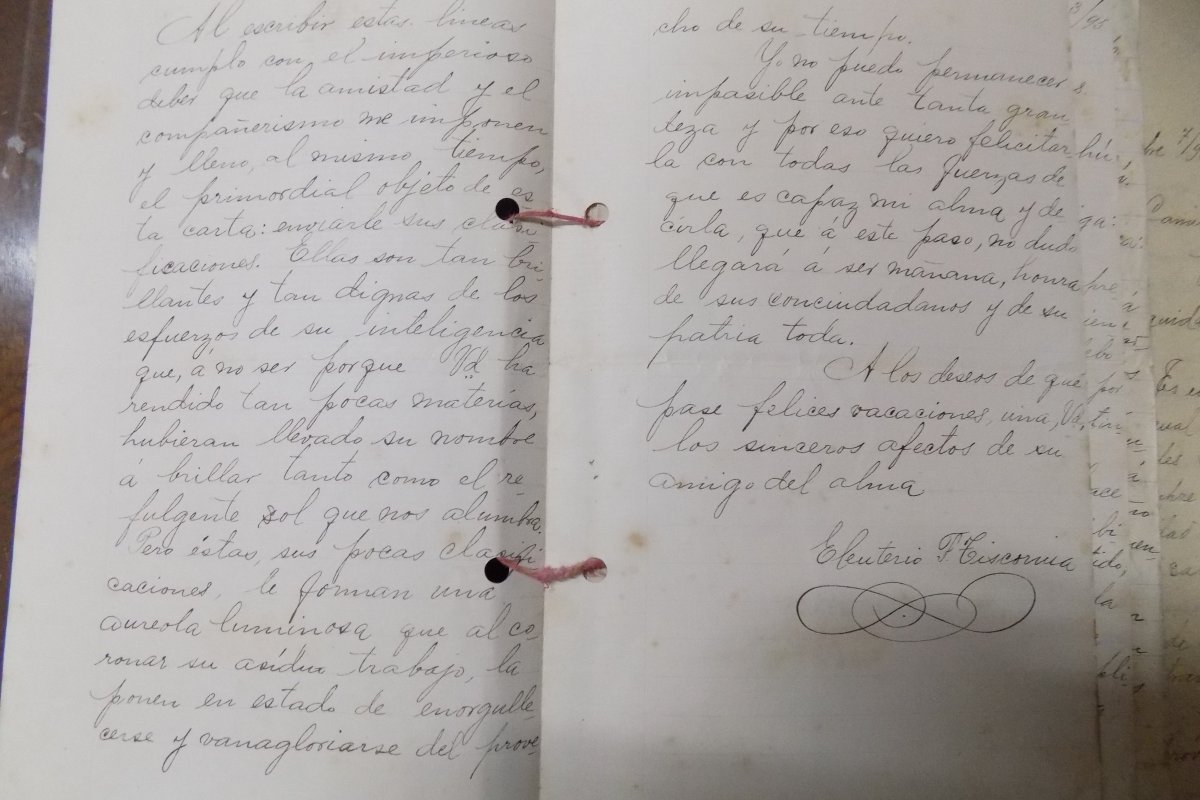 Al escribir estas líneas
cumplo con el imperioso
deber que la amistad y el
compañerismo me imponen
y lleno, al mismo tiempo,
el primordial objeto de es
ta carta: enviarle sus clasi
ficaciones. Ellas son tan bri-
llantes y tan dignas de los
esfuerzos de su inteligencia
que, á no ser porque Vd. ha
rendido tan pocas materias,
hubieran llevado su nombre
á brillar tanto como el re-
fulgente sol que nos alumbra.
Pero éstas, sus pocas clasifi
caciones, le forman una
aureola luminosa que al co-
ronar su asíduo trabajo, la
ponen en estado de enorgulle-
cerse y vanagloriarse del prove-
cho de su tiempo.
Yo no puedo permanecer
impasible ante tanta gran
deza y por eso quiero felicitar
la con todas las fuerzas de
que es capaz mi alma y de
cirla, que á este paso, no dudo
llegará á ser mañana, honra
de sus conciudadanos y de su
patria toda.
A los deseos de que
pase felices vacaciones, una, Vd.,
los sinceros afectos de su
amigo del alma
Eleuterio F. Tiscornia